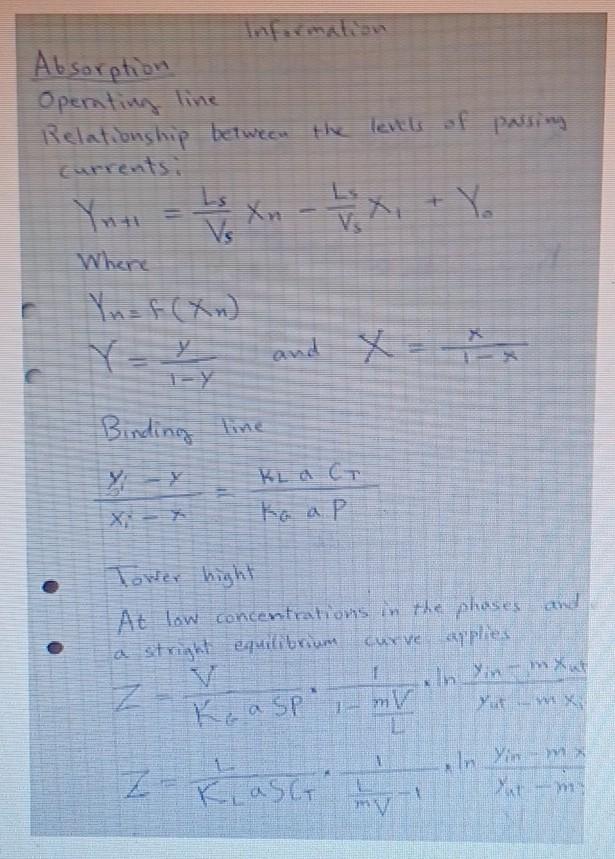 Information
Absorption
Operating line
Relationship between the levels of passing
currents:
Yn+1 = Ls/Vs Xn - Ls/Vs X1 + Y0
Where
Yn = f(Xn)
Y = y/1-y and X = x/1-x
Binding line
yi - y/xi - x = KL a CT/KG a P
Tower hight
At low concentrations in the phases and
a stright equilibrium curve applies
Z = V/KG a SP · 1/1 - mV/L · ln yin - m xut/yut - m xi
Z = L/KL a SCT · 1/L/mV - 1 · ln yin - m x/yut - m